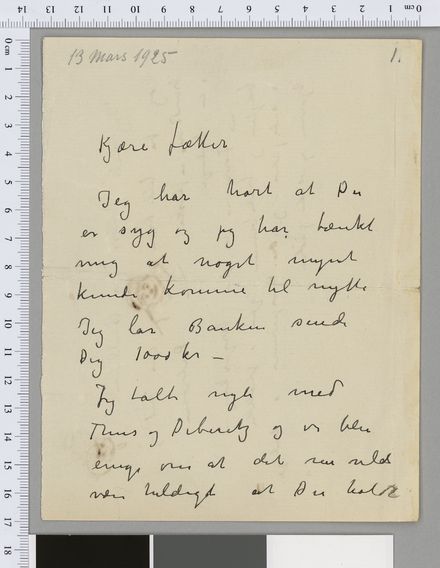 13 Mars 1925
1.
Kjære Fætter
Jeg har hørt at Du
er syg og jeg har tænkt
mig at noget mynt
kunde komme til nytte
Jeg lar Banken sende
Dig 1000 kr –
Jeg talte nylig med
Thiis og og vi blev
enige om at det
være heldigt at Du holdt